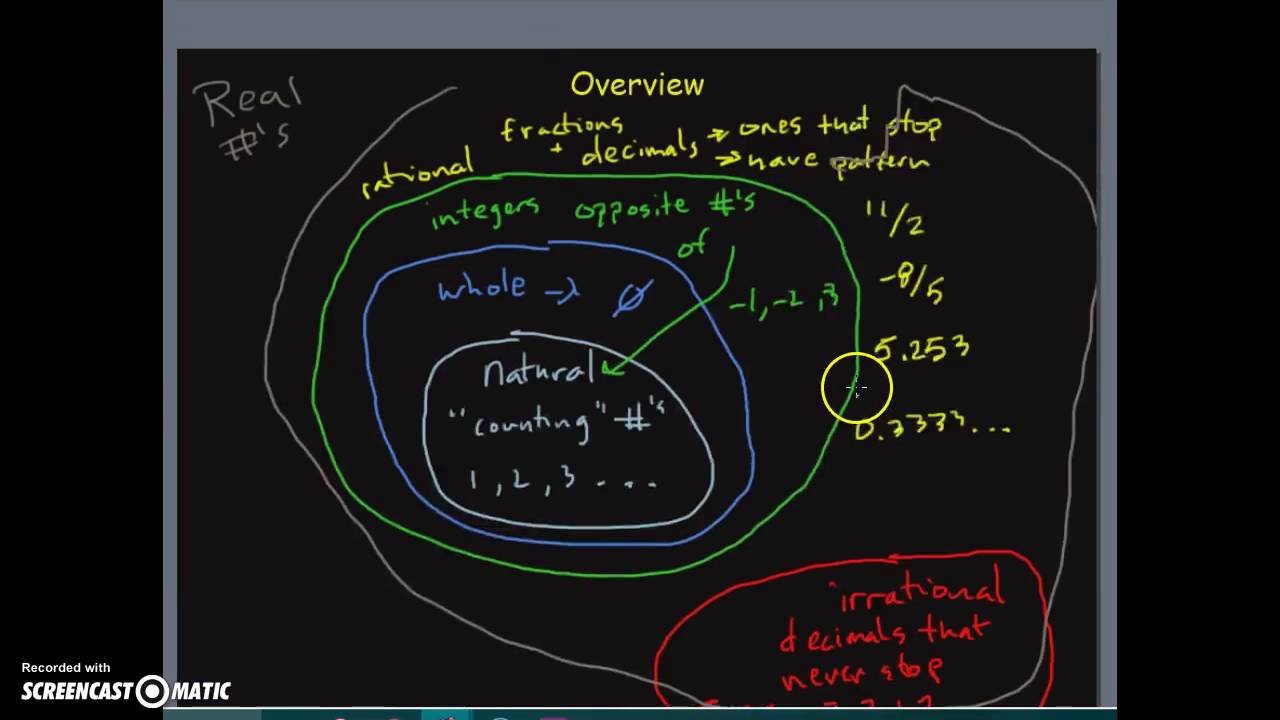 Overview
Real
#'s
fractions
+ decimals → ones that stop
→ have pattern
rational
integers opposite #'s
of
whole → 0
-1, -2, 3
natural
"counting" #'s
1, 2, 3 ...
11/2
-8/5
5.253
0.3333...
irrational
decimals that
never stop
Recorded with
SCREENCAST O MATIC